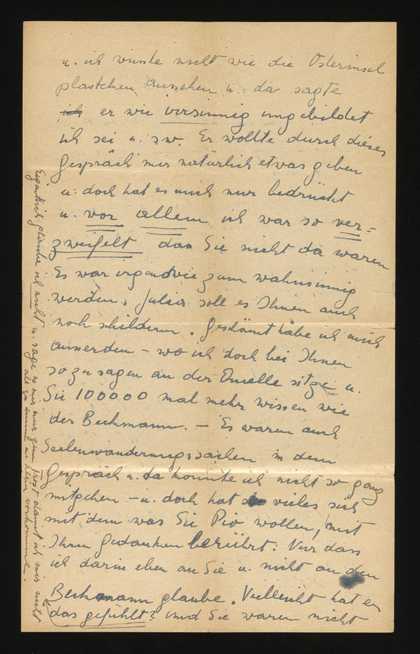 u. ich wusste nicht wie die Osterinsel
plastiken aussehen u. da sagte
ich er wie irrsinnig ungebildet
ich sei u. s.w. Er wollte durch dieses
Gespräch mir natürlich etwas geben
u. doch hat es mich nur bedrückt
u. vor allem ich war so ver-
zweifelt dass Sie nicht da waren
Es war irgendwie zum wahnsinnig
werden, soll es Ihnen auch
noch schildern. Geschämt habe ich mich
ausserdem – wo ich doch bei Ihnen
sozusagen an der Quelle sitze u.
Sie 100000 mal mehr wissen wie
der Beckmann. – Es waren auch
Seelenwanderungssachen in dem
Gespräch u. da konnte ich nicht so ganz
mitgehen – u. doch hat so vieles sich
mit dem was Sie wollen, mit
Ihren Gedanken berührt. Nur dass
ich darin eben an Sie u. nicht an den
Beckmann glaube. Vielleicht hat er
das gefühlt? Und Sie waren nicht
Eigentlich glaube ich nicht u. sage es mir nur zum Trost damit ich mir nicht
als zu dumm u. klein vorkomme.